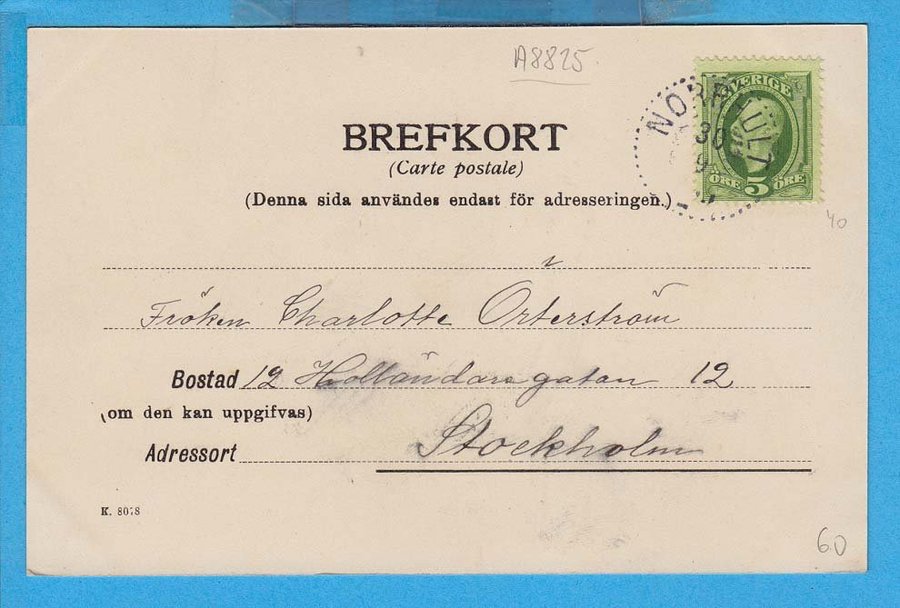 A8825
SVERIGE
NORRHULT
30
ÖRE 5 ÖRE
BREFKORT
(Carte postale)
(Denna sida användes endast för adresseringen.)
40
Fröken Charlotte Örterström
Bostad 12 Holländaregatan 12
(om den kan uppgifvas)
Adressort Stockholm
K. 8078
60